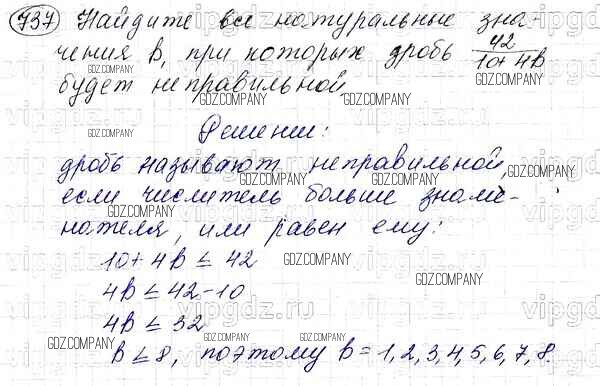 737 Найдите все натуральные зна-
чения в, при которых дробь 42/10+4в
будет неправильной.
Решение:
дробь называют неправильной,
если числитель больше знаме-
нателя, или равен ему:
10+4в ≤ 42
4в ≤ 42-10
4в ≤ 32
в ≤ 8, поэтому в = 1, 2, 3, 4, 5, 6, 7, 8.